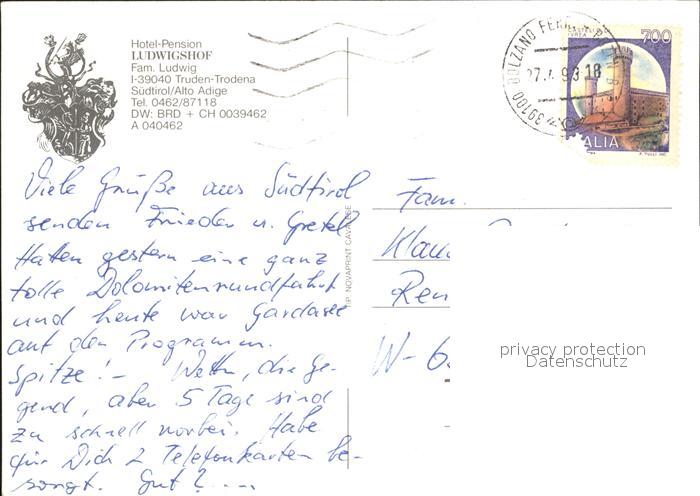 Hotel-Pension
LUDWIGSHOF
Fam. Ludwig
I-39040 Truden-Trodena
Südtirol/Alto Adige
Tel. 0462/87118
DW: BRD + CH 0039462
A 040462
39100 BOLZANO FERR
27.4.93 18
700
ITALIA
Viele Grüße aus Südtirol
senden Frieder u. Gretel
Hatten gestern eine ganz
tolle Dolomitenrundfahrt
und heute war Gardasee
auf dem Programm.
Spitze! - Wetter, die Ge-
gend, aber 5 Tage sind
zu schnell vorbei. Habe
für Dich 2 Telefonkarten be-
sorgt. Gut? ....
TIP. NOVAPRINT CAVALESE
Fam.
Klau
Ren
W-6
privacy protection
Datenschutz